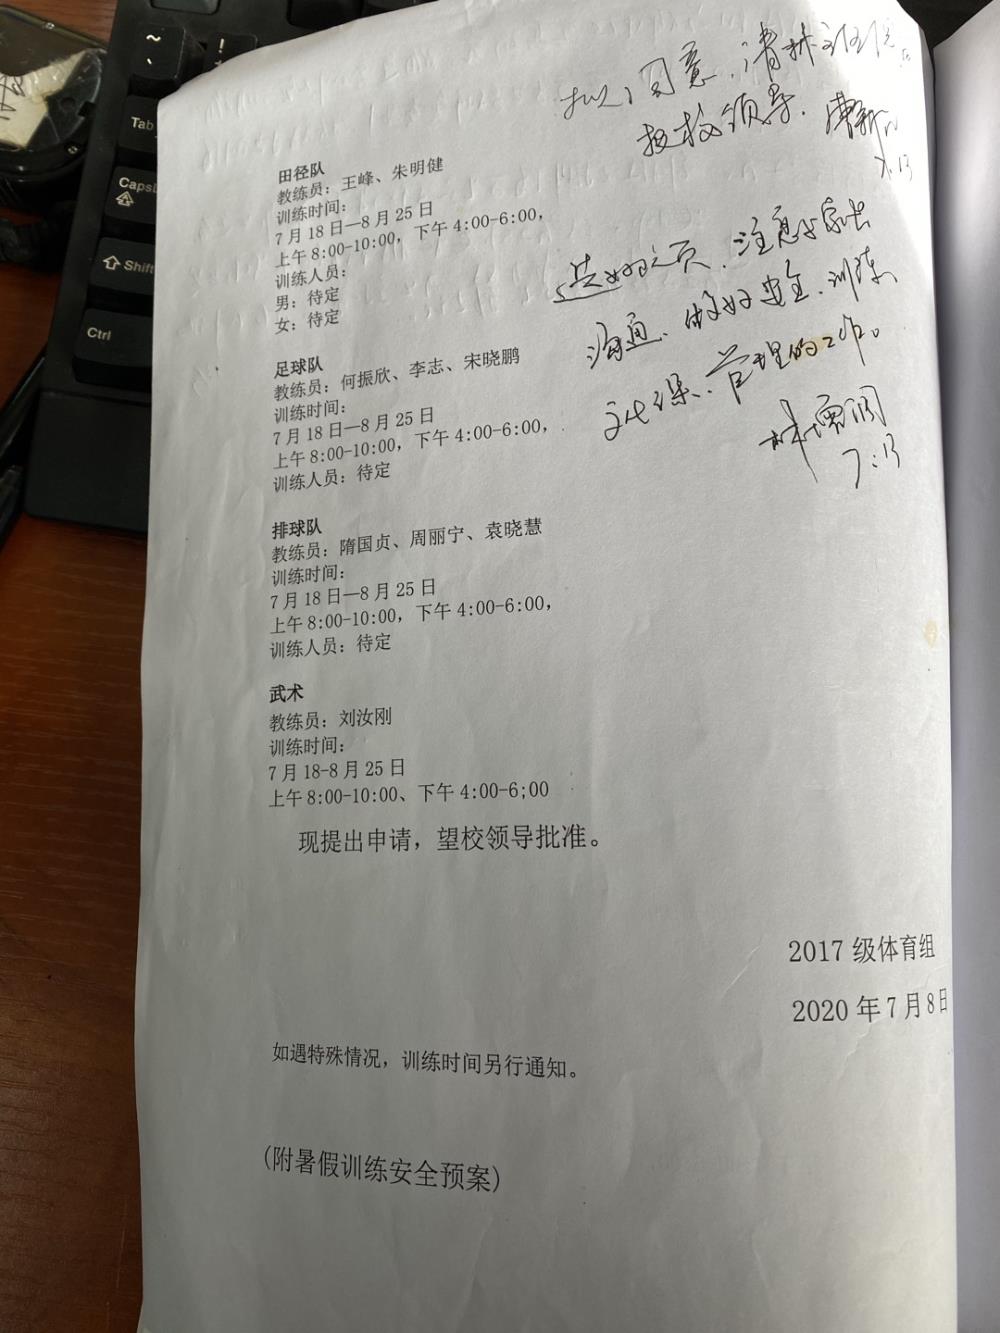 ~
!
Tab
Caps
Shift
Ctrl
拟同意，请林主任
报校领导.
注意与家长
沟通、做好安全、训练
文化课、管理的工作。
7.13
田径队
教练员：王峰、朱明健
训练时间：
7月18日—8月25日
上午8:00-10:00，下午4:00-6:00，
训练人员：
男：待定
女：待定
足球队
教练员：何振欣、李志、宋晓鹏
训练时间：
7月18日—8月25日
上午8:00-10:00，下午4:00-6:00，
训练人员：待定
排球队
教练员：隋国贞、周丽宁、袁晓慧
训练时间：
7月18日—8月25日
上午8:00-10:00，下午4:00-6:00，
训练人员：待定
武术
教练员：刘汝刚
训练时间：
7月18-8月25日
上午8:00-10:00、下午4:00-6;00
现提出申请，望校领导批准。
2017级体育组
2020年7月8日
如遇特殊情况，训练时间另行通知。
(附暑假训练安全预案)